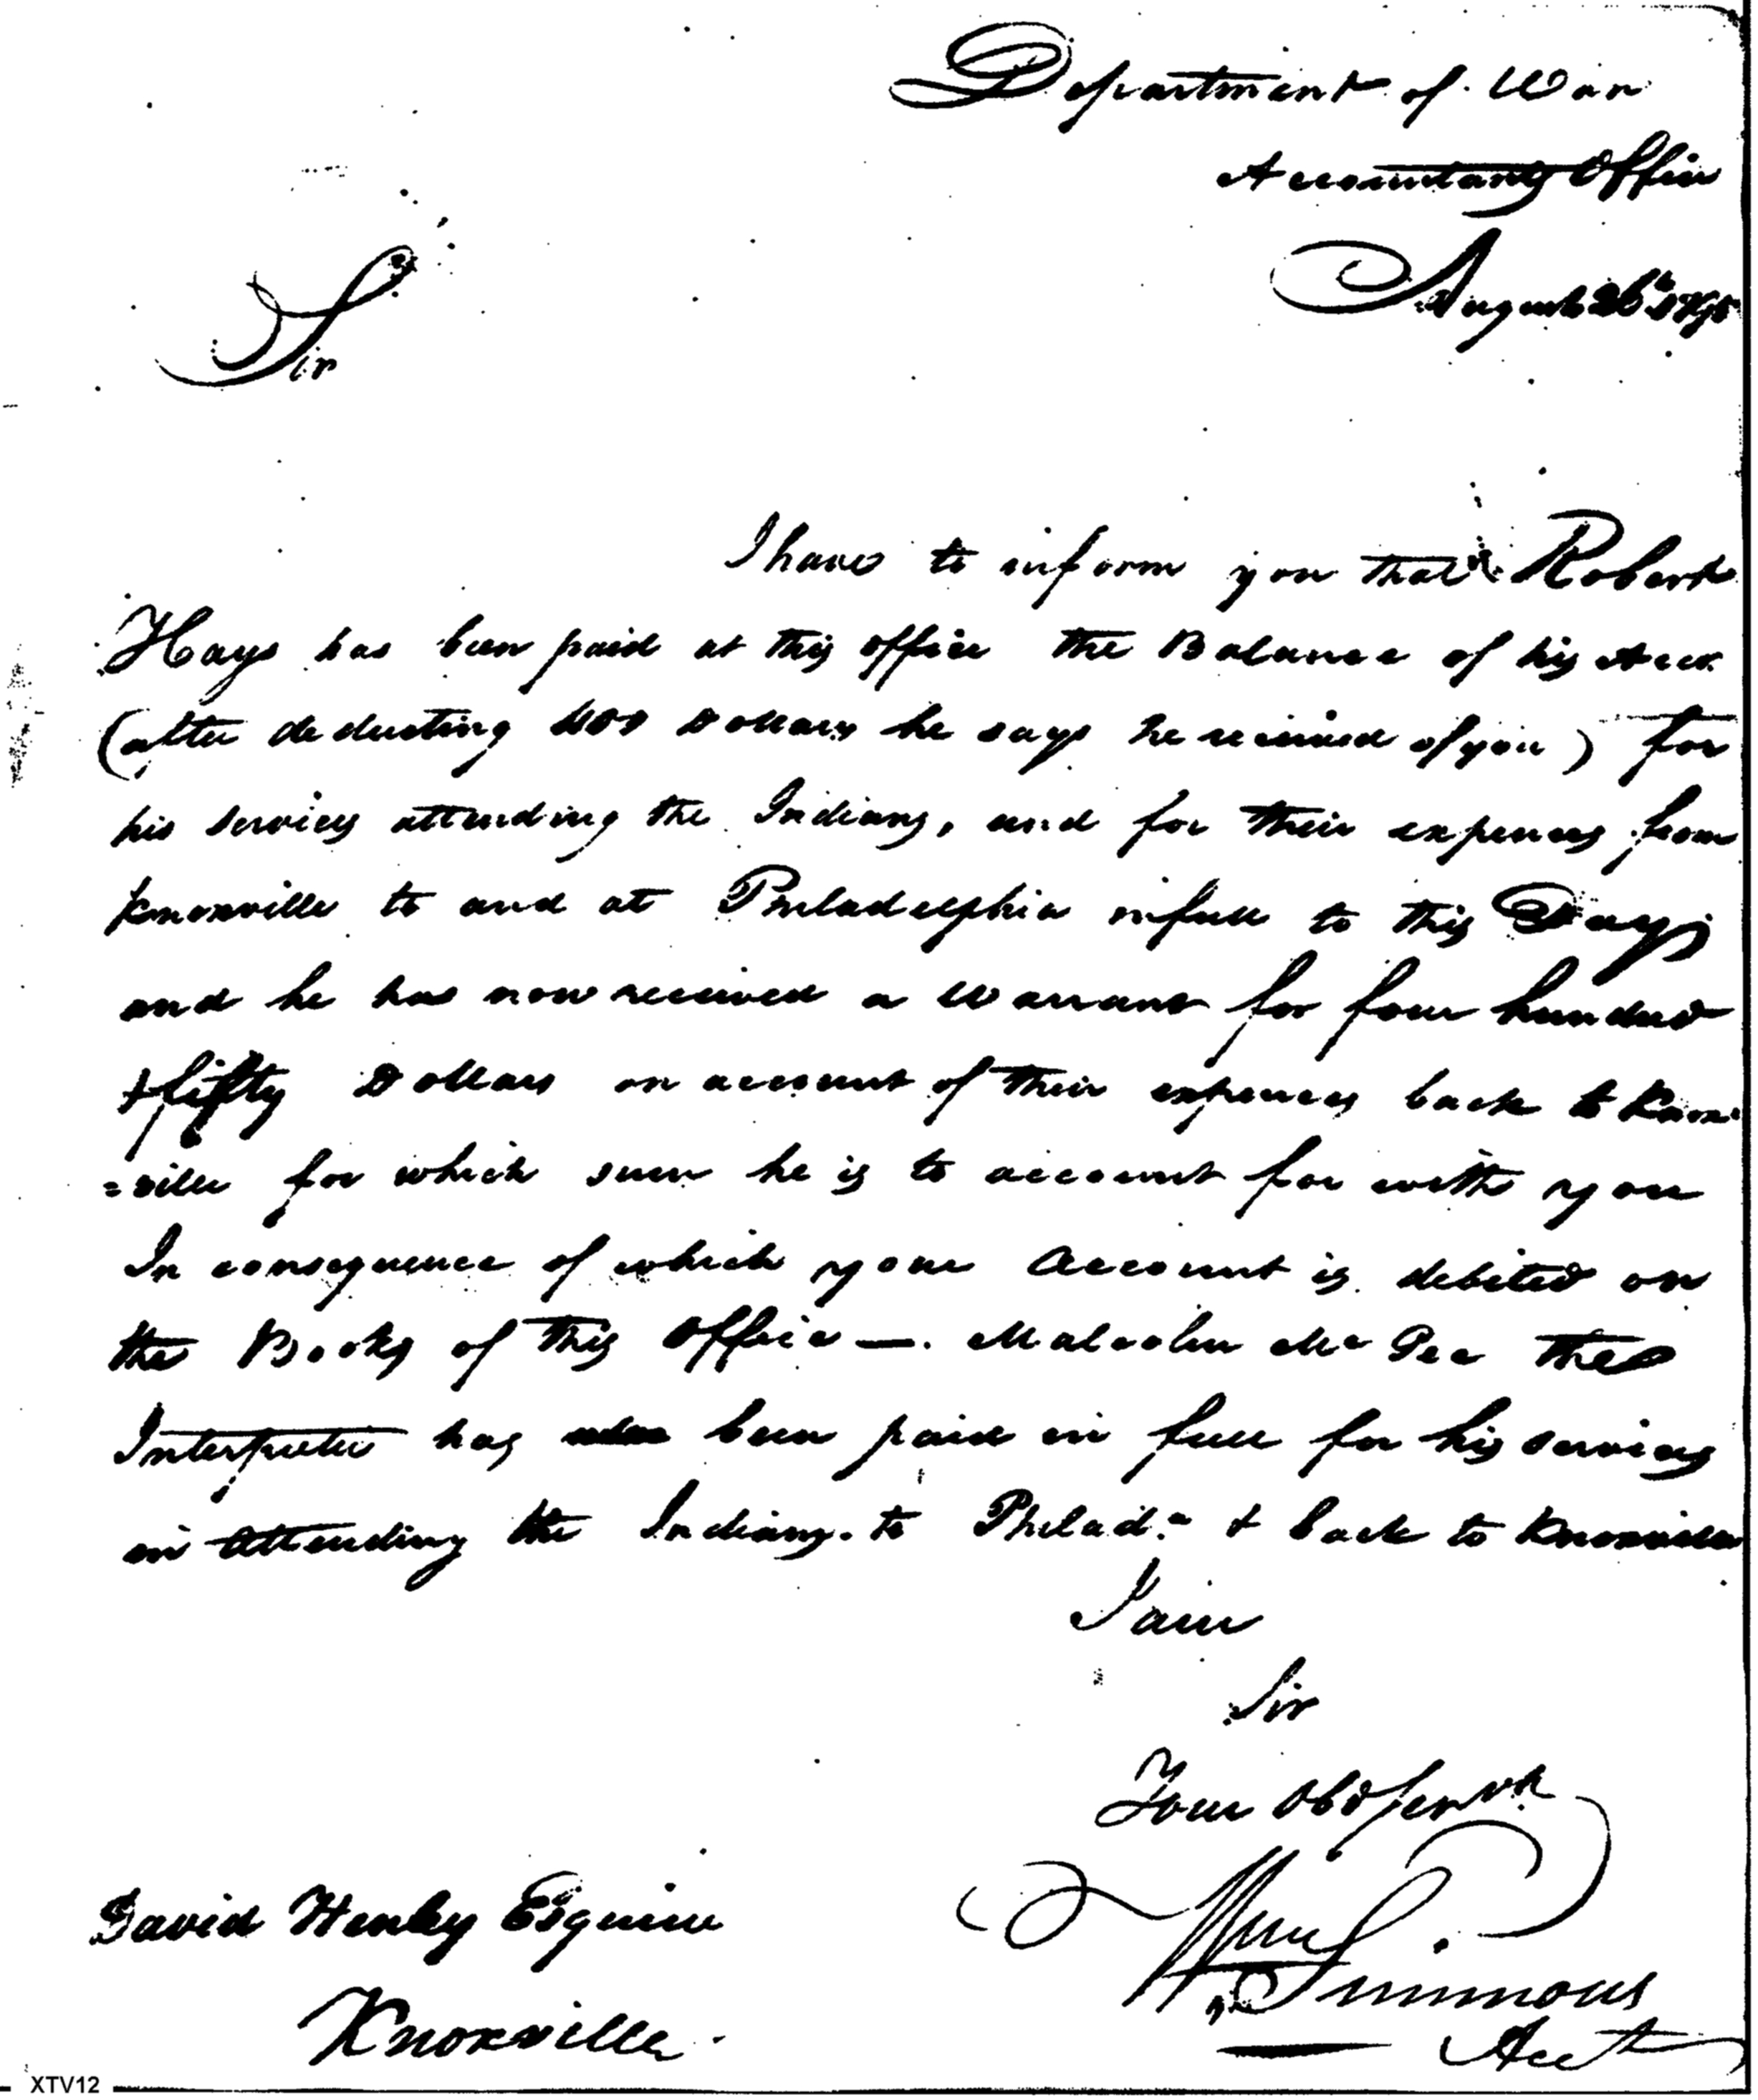 Department of War
Accountants Office
August 26th 1795
Sir
I have to inform you that Robert
Hays has been paid at this office the Balance of his Acct.
(after deducting 400 Dollars he says he received of you) for
his services attending the Indians, and for their expences from
Knoxville to and at Philadelphia in full to this Day
and he has now received a Warrant for four hundred
& fifty Dollars on account of their expences back to Knox
=ville for which sum he is to account for with you
In consequence of which your Account is debited on
the Books of this Office—. Malcolm Mc Gee the
Interpreter has been paid in full for his services
in attending the Indians to Philada. & back to Knoxville
I am
Sir
Your Obd Servt.
Wm Simmons
Acct
David Henley Esquire
Knoxville.
XTV12